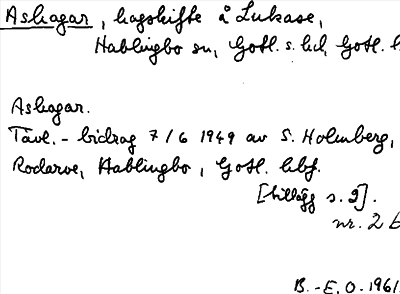 Ashagar, hagskifte å Lukase,
Hablingbo sn, Gotl. s. hd, Gotl. l
Ashagar.
Tävl. - bidrag 7/6 1949 av S. Holmberg,
Rodarve, Hablingbo, Gotl. kbf.
[tillägg s. 2].
nr. 2 b
B.-E.O. 1961.